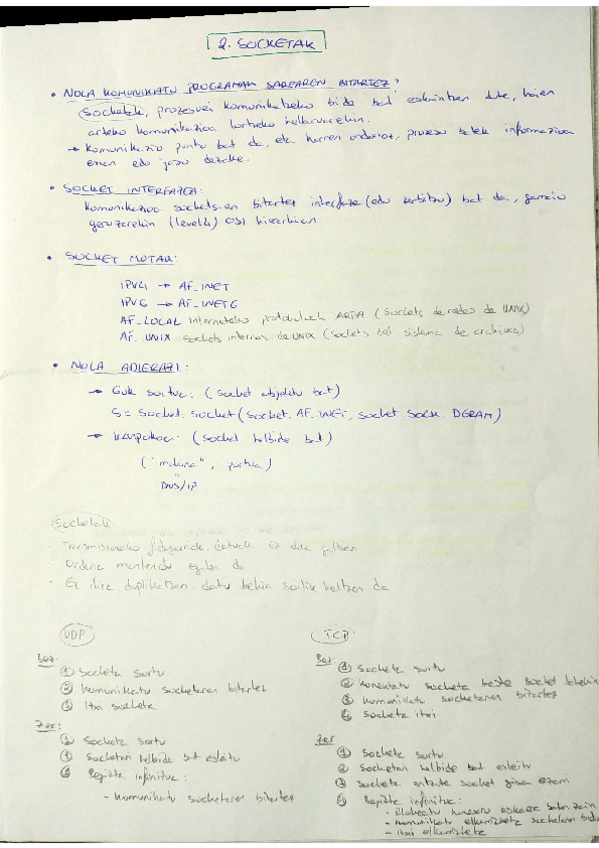 2. SOCKETAK
• NOLA KOMUNIKATU PROGRAMAK SAREAREN BITARTEZ?
Socketak, prozesuei komunikatzeko bide bat eskaintzen dute, haien
arteko komunikazioa lortzeko helburuarekin.
→ Komunikazio puntu bat da, eta horren ondorioz, prozesu batek informazioa
eman edo jaso dezake.
• SOCKET INTERFAZEA:
Komunikazioa sockets-en bitartez interfaze (edo zerbitzu) bat da, garraio
geruzarekin (level4) OSI hierarkian
• SOCKET MOTAK:
IPV4 → AF_INET
IPV6 → AF_INET6
AF_LOCAL Interneteko protokoloak ARPA (Sockets de redes de UNIX)
AF_UNIX sockets internos de UNIX (sockets del sistema de archivos)
• NOLA ADIERAZI:
→ Guk sortua: (Socket objektu bat)
S = Socket.socket(socket.AF_INET, socket.SOCK_DGRAM)
→ Kanpokoa: (Socket helbide bat)
("makina", portua)
DNS/IP
Socketak
- Transmisioko fidagarriak, datuak ez dira galtzen
- Ordena mantendu egiten da
- Ez dira duplikatzen, datu behin soilik heltzen da
UDP
Bez:
① Socketa sortu
② Komunikatu socketaren bitartez
③ Itxi socketa
Zer:
① Socketa sortu
Socketari helbide bat esleitu
Begizta infinitua:
- Komunikatu socketaren bitartez
TCP
Bez:
① Socketa sortu
② Konektatu socketa beste socket batekin
③ Komunikatu socketaren bitartez
④ Socketa itxi
Zer:
① Socketa sortu
② Socketari helbide bat esleitu
③ Socketa entzute socket gisa ezarri
Begizta infinitua:
- Komunikatu elkarrizketa socketaren
- Itxi elkarrizketa